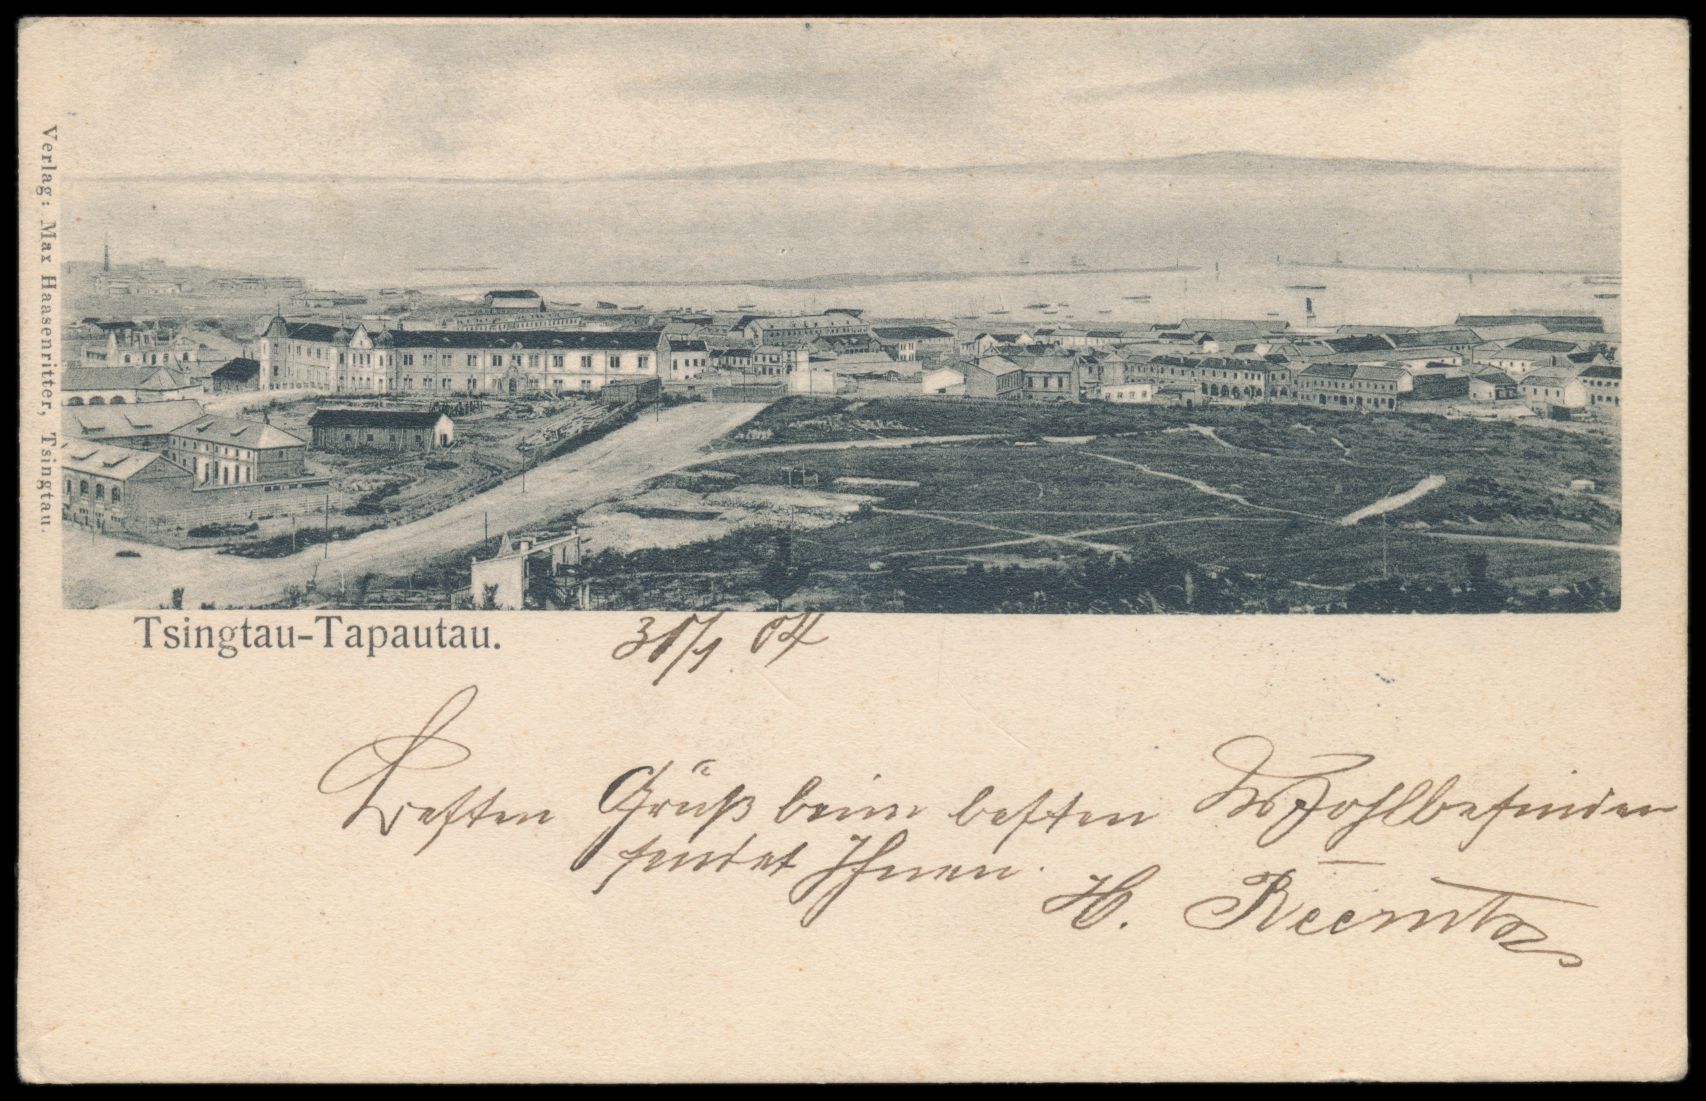 Verlag: Max Haasenritter, Tsingtau.
Tsingtau-Tapautau.
31/1 04
Besten Grüß beim besten Wohlbefinden
sendet Ihnen.
H. Reemts